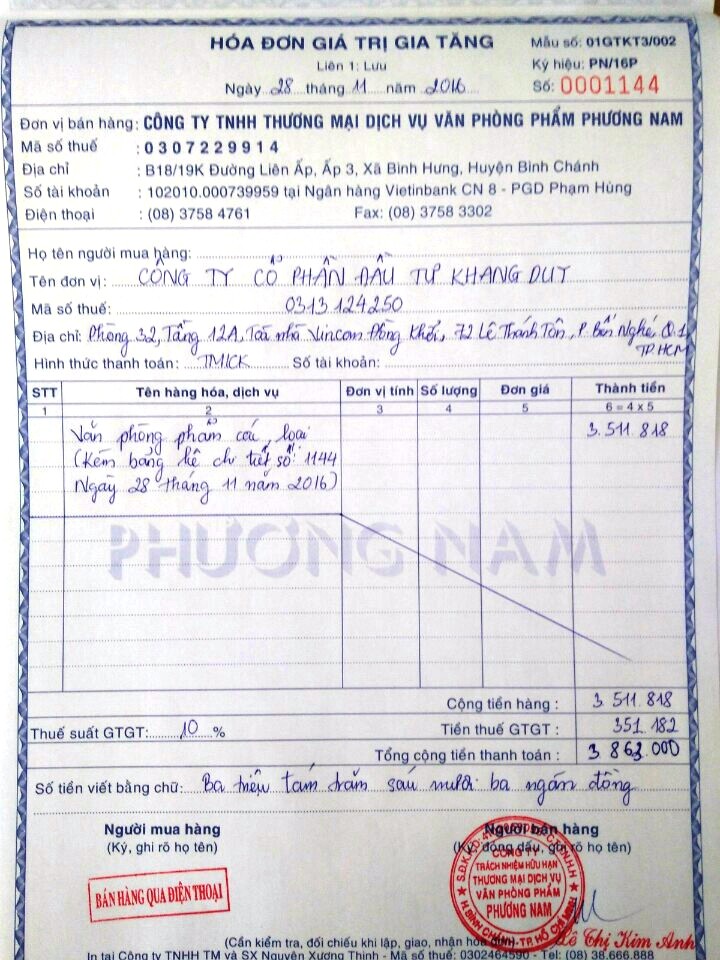 HÓA ĐƠN GIÁ TRỊ GIA TĂNG
Mẫu số: 01GTKT3/002
Liên 1: Lưu
Ký hiệu: PN/16P
Ngày 28 tháng 11 năm 2016
Số: 0001144
Đơn vị bán hàng: CÔNG TY TNHH THƯƠNG MẠI DỊCH VỤ VĂN PHÒNG PHẨM PHƯƠNG NAM
Mã số thuế : 0307229914
Địa chỉ : B18/19K Đường Liên Ấp, Ấp 3, Xã Bình Hưng, Huyện Bình Chánh
Số tài khoản : 102010.000739959 tại Ngân hàng Vietinbank CN 8 - PGD Phạm Hùng
Điện thoại : (08) 3758 4761 Fax: (08) 3758 3302
Họ tên người mua hàng:
Tên đơn vị: CÔNG TY CỔ PHẦN ĐẦU TƯ KHANG DUY
Mã số thuế: 0313124250
Địa chỉ: Phòng 32, Tầng 12A, Toà nhà Vincom Đồng Khởi, 72 Lê Thánh Tôn, P Bến Nghé, Q.1
TP.HCM
Hình thức thanh toán: TM/CK Số tài khoản:
STT Tên hàng hóa, dịch vụ Đơn vị tính Số lượng Đơn giá Thành tiền
1 2 3 4 5 6 = 4 x 5
Văn phòng phẩm các loại 3.511.818
(Kèm bảng kê chi tiết số: 1144
Ngày 28 tháng 11 năm 2016)
PHƯƠNG NAM
Cộng tiền hàng : 3.511.818
Thuế suất GTGT: 10 % Tiền thuế GTGT : 351.182
Tổng cộng tiền thanh toán : 3.863.000
Số tiền viết bằng chữ: Ba triệu tám trăm sáu mươi ba ngàn đồng
Người mua hàng Người bán hàng
(Ký, ghi rõ họ tên) (Ký, đóng dấu, ghi rõ họ tên)
BÁN HÀNG QUA ĐIỆN THOẠI
CÔNG TY
TRÁCH NHIỆM HỮU HẠN
THƯƠNG MẠI DỊCH VỤ
VĂN PHÒNG PHẨM
PHƯƠNG NAM
H. BÌNH CHÁNH - TP. HỒ CHÍ MINH
Lê Thị Kim Anh
(Cần kiểm tra, đối chiếu khi lập, giao, nhận hóa đơn)
In tại Công ty TNHH TM và SX Nguyên Xương Thịnh - Mã số thuế: 0302464590 - Tel: (08) 38.666.888